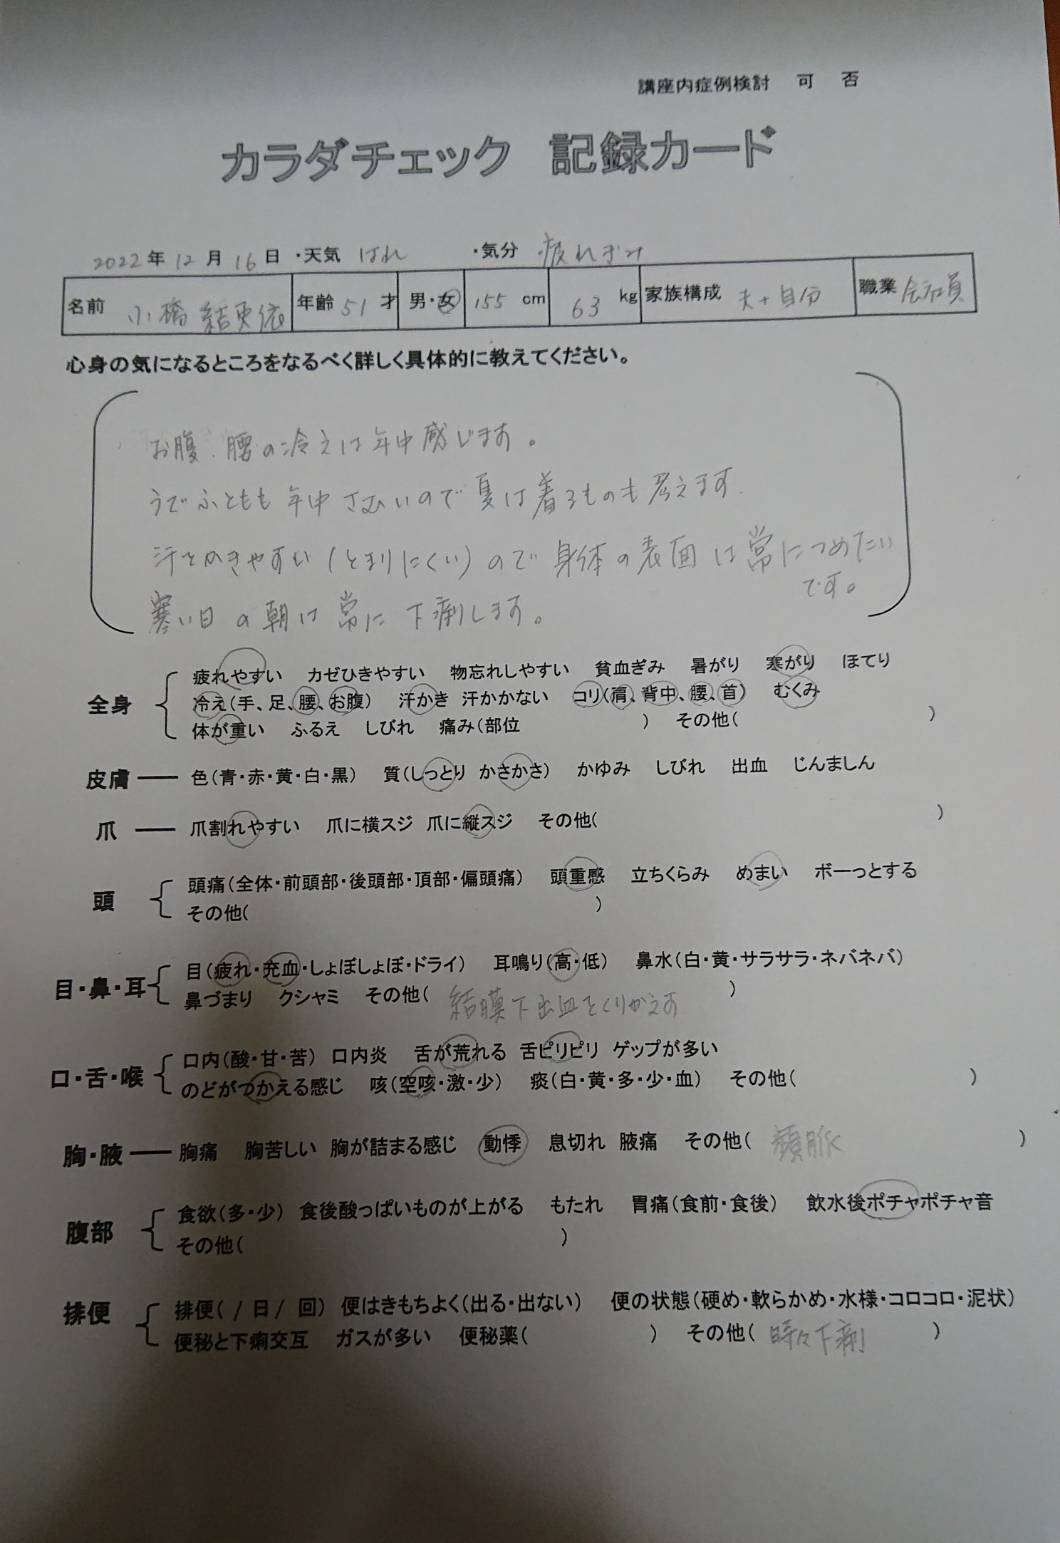 講座内症例検討　可　否
カラダチェック　記録カード
2022年12月16日・天気 はれ ・気分 疲れぎみ
名前 小橋 結更依 年齢51才 男・女 155 cm 63 kg 家族構成 夫+自分 職業 会社員
心身の気になるところをなるべく詳しく具体的に教えてください。
お腹、腰の冷えは年中感じます。
うでふともも年中さむいので夏は着るものも考えます。
汗をかきやすい(とまりにくい)ので身体の表面は常につめたい
です。
寒い日の朝は常に下痢します。
全身
疲れやすい　カゼひきやすい　物忘れしやすい　貧血ぎみ　暑がり　寒がり　ほてり
冷え(手、足、腰、お腹)　汗かき　汗かかない　コリ(肩、背中、腰、首)　むくみ
体が重い　ふるえ　しびれ　痛み(部位　)　その他(　)
皮膚 色(青・赤・黄・白・黒)　質(しっとり　かさかさ)　かゆみ　しびれ　出血　じんましん
爪 爪割れやすい　爪に横スジ　爪に縦スジ　その他(　)
頭
頭痛(全体・前頭部・後頭部・頂部・偏頭痛)　頭重感　立ちくらみ　めまい　ボーっとする
その他(　)
目・鼻・耳
目(疲れ・充血・しょぼしょぼ・ドライ)　耳鳴り(高・低)　鼻水(白・黄・サラサラ・ネバネバ)
鼻づまり　クシャミ　その他(結膜下出血をくりかえす)
口・舌・喉
口内(酸・甘・苦)　口内炎　舌が荒れる　舌ピリピリ　ゲップが多い
のどがつかえる感じ　咳(空咳・激・少)　痰(白・黄・多・少・血)　その他(　)
胸・腋 胸痛　胸苦しい　胸が詰まる感じ　動悸　息切れ　腋痛　その他(頻脈)
腹部
食欲(多・少)　食後酸っぱいものが上がる　もたれ　胃痛(食前・食後)　飲水後ポチャポチャ音
その他(　)
排便
排便( / 日 / 回)　便はきもちよく(出る・出ない)　便の状態(硬め・軟らかめ・水様・コロコロ・泥状)
便秘と下痢交互　ガスが多い　便秘薬(　)　その他(時々下痢)